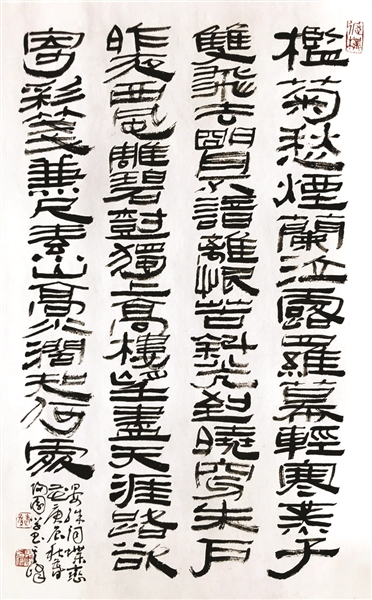 檻菊愁煙蘭泣露羅幕輕寒燕子
雙飛去明月不諳離恨苦斜光到曉穿朱戶
昨夜西風雕碧樹獨上高樓望盡天涯路欲
寄彩箋兼尺素山長水闊知何處
晏殊詞蝶戀
花庚辰秋